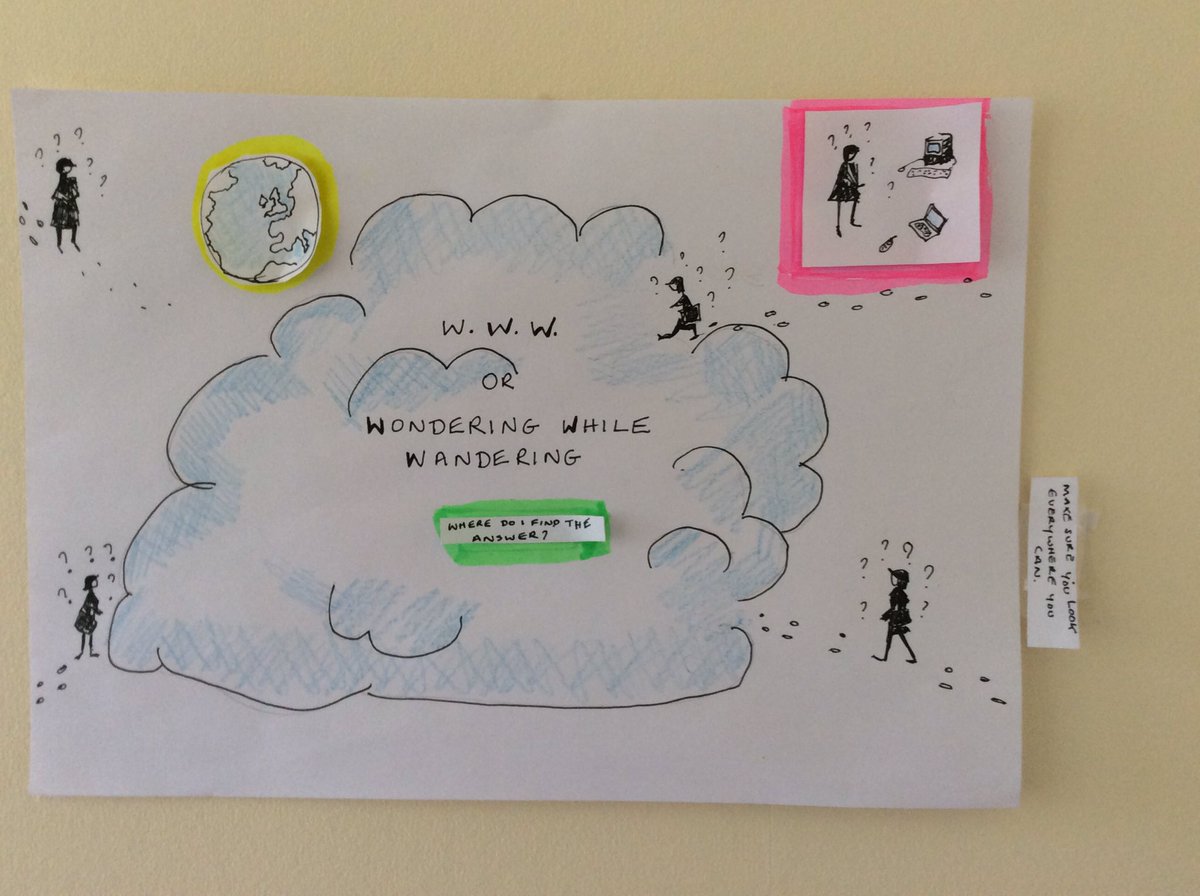 W. W. W.
OR
WONDERING WHILE
WANDERING
WHERE DO I FIND THE
ANSWER?
MAKE SURE YOU LOOK
EVERYWHERE YOU
CAN.